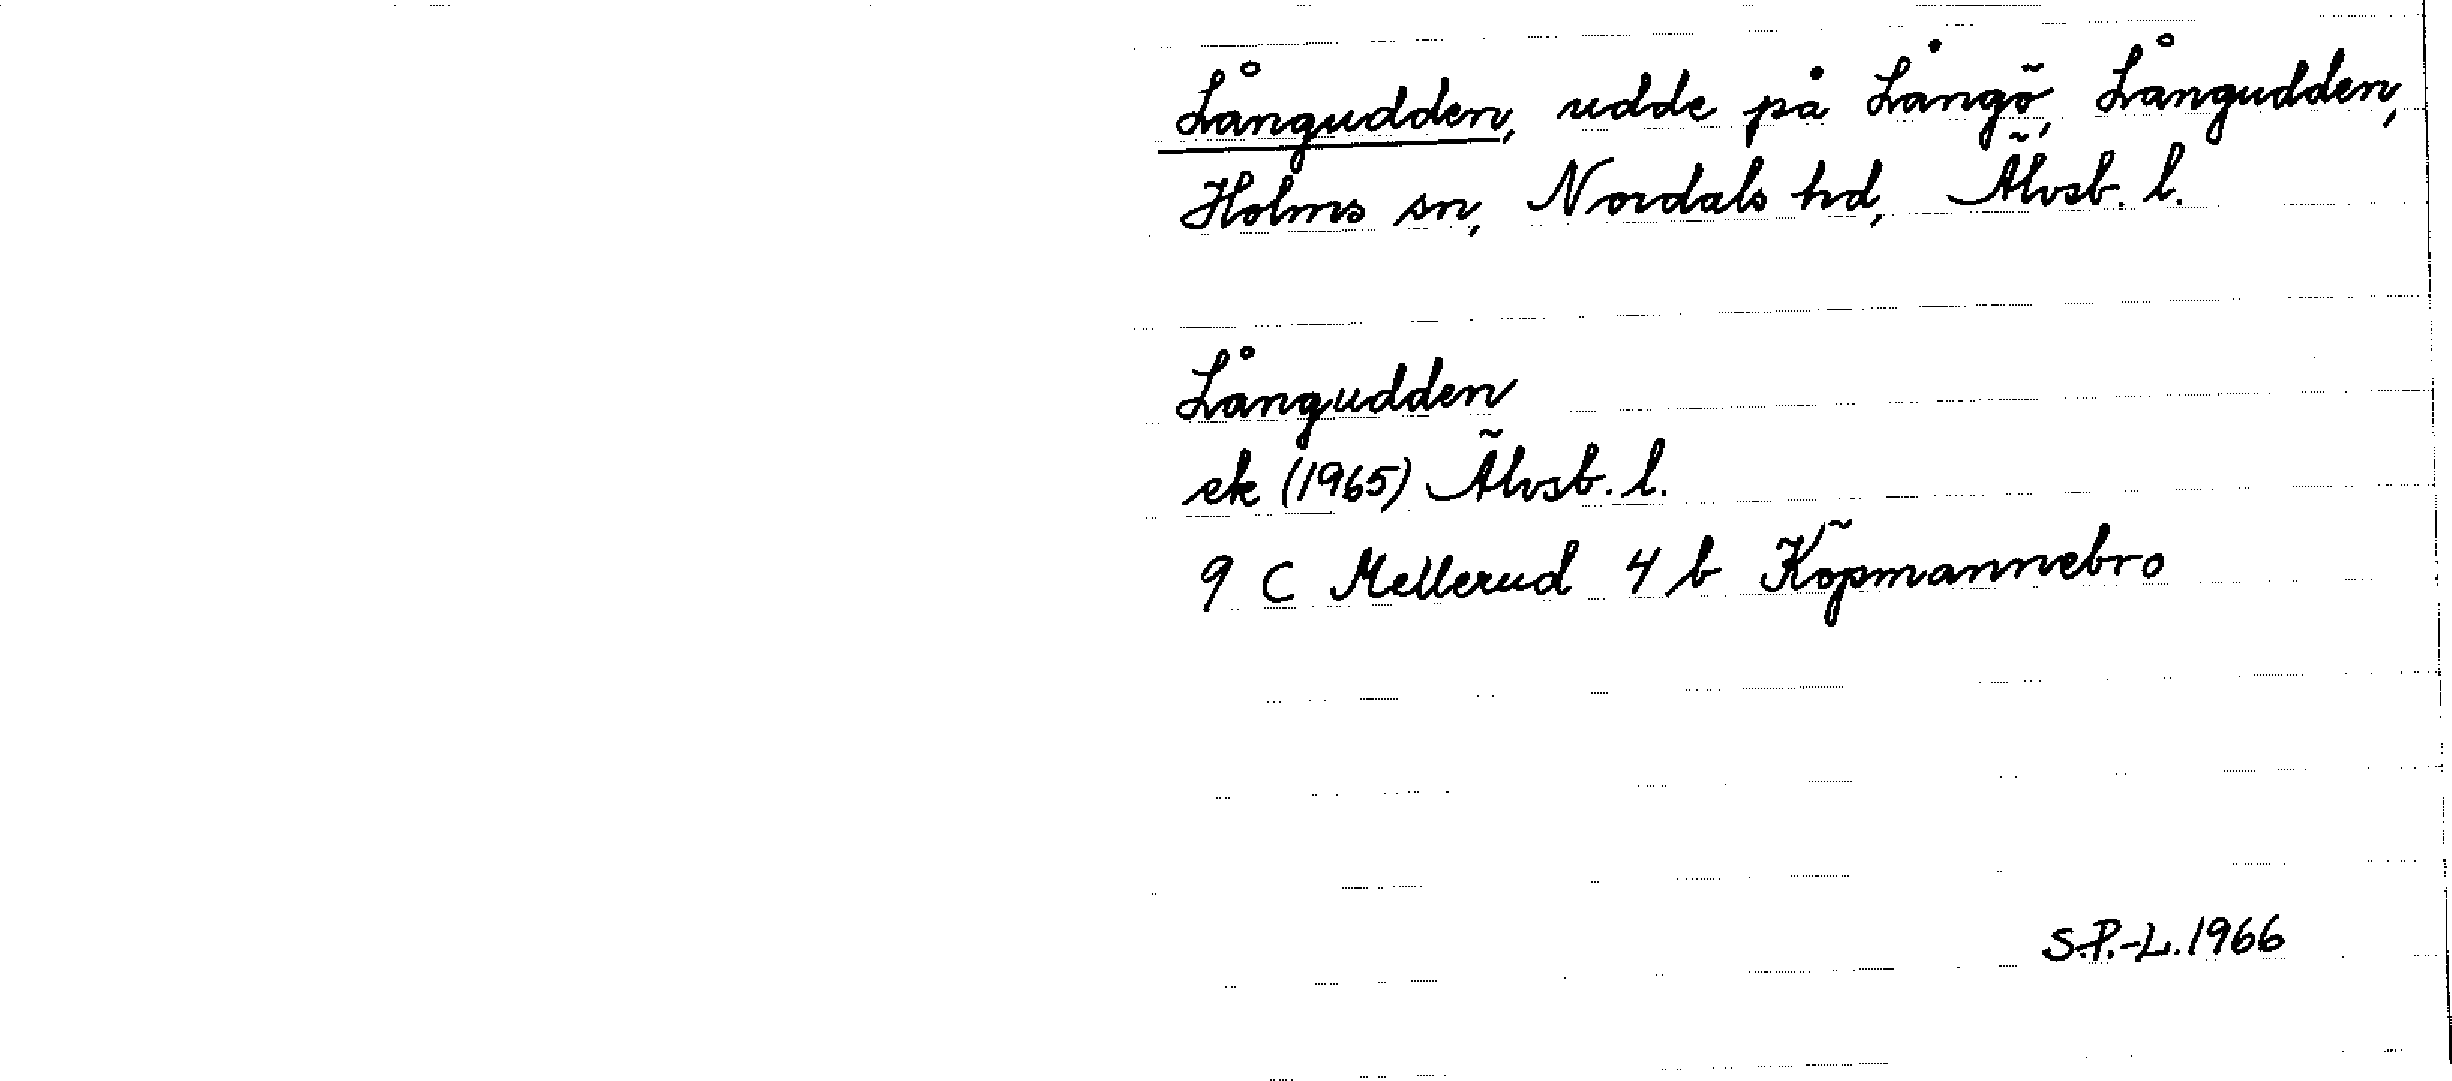 Långudden, udde på Långö, Långudden,
Holms sn, Nordals hd, Älvsb. l.
Långudden
ek (1965) Älvsb. l.
9 C Mellerud 4 b Köpmannebro
S.P.-L. 1966